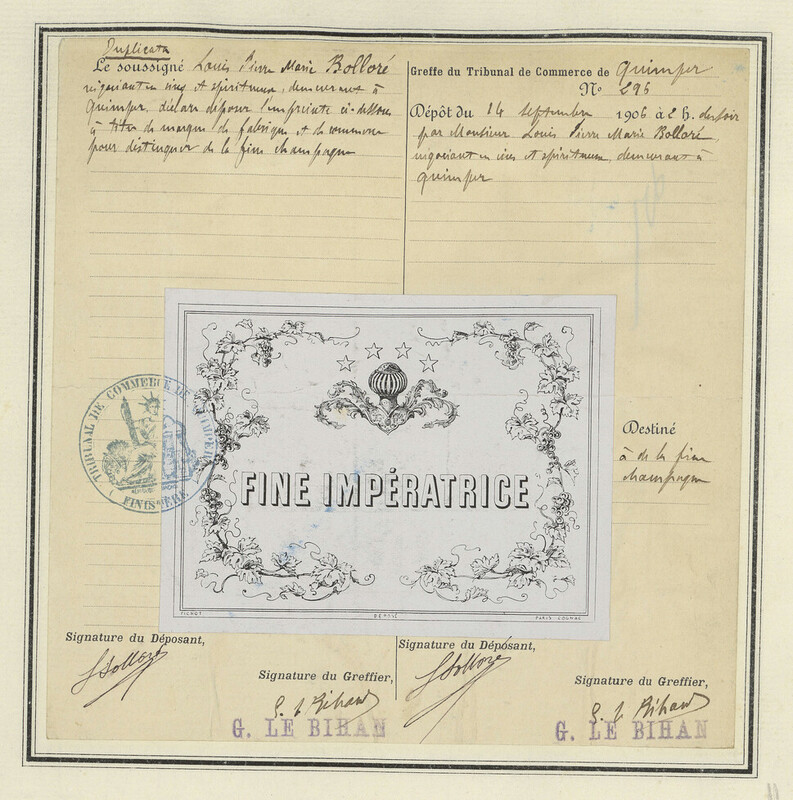 Duplicata
Le soussigné Louis Pierre Marie Bolloré
négociant en vins et spiritueux, demeurant à
Quimper, déclare déposer l'empreinte ci-dessous
à titre de marque de fabrique et de commerce
pour distinguer de la fine champagne
Greffe du Tribunal de Commerce de Quimper
N° 296
Dépôt du 14 septembre 1906 à 2 h. du soir
par Monsieur Louis Pierre Marie Bolloré,
négociant en vins et spiritueux, demeurant à
Quimper
TRIBUNAL DE COMMERCE DE QUIMPER
FINISTÈRE
FINE IMPÉRATRICE
DÉPOSÉ
Destiné
à de la fine
champagne
Signature du Déposant,
LBolloré
Signature du Greffier,
G. Le Bihan
G. LE BIHAN
Signature du Déposant,
LBolloré
Signature du Greffier,
G. Le Bihan
G. LE BIHAN